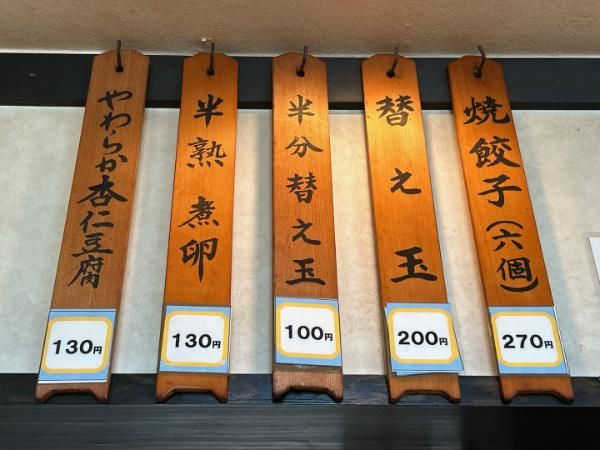 焼餃子(六個)
270円
替え玉
200円
半分替え玉
100円
半熟煮卵
130円
やわらか杏仁豆腐
130円